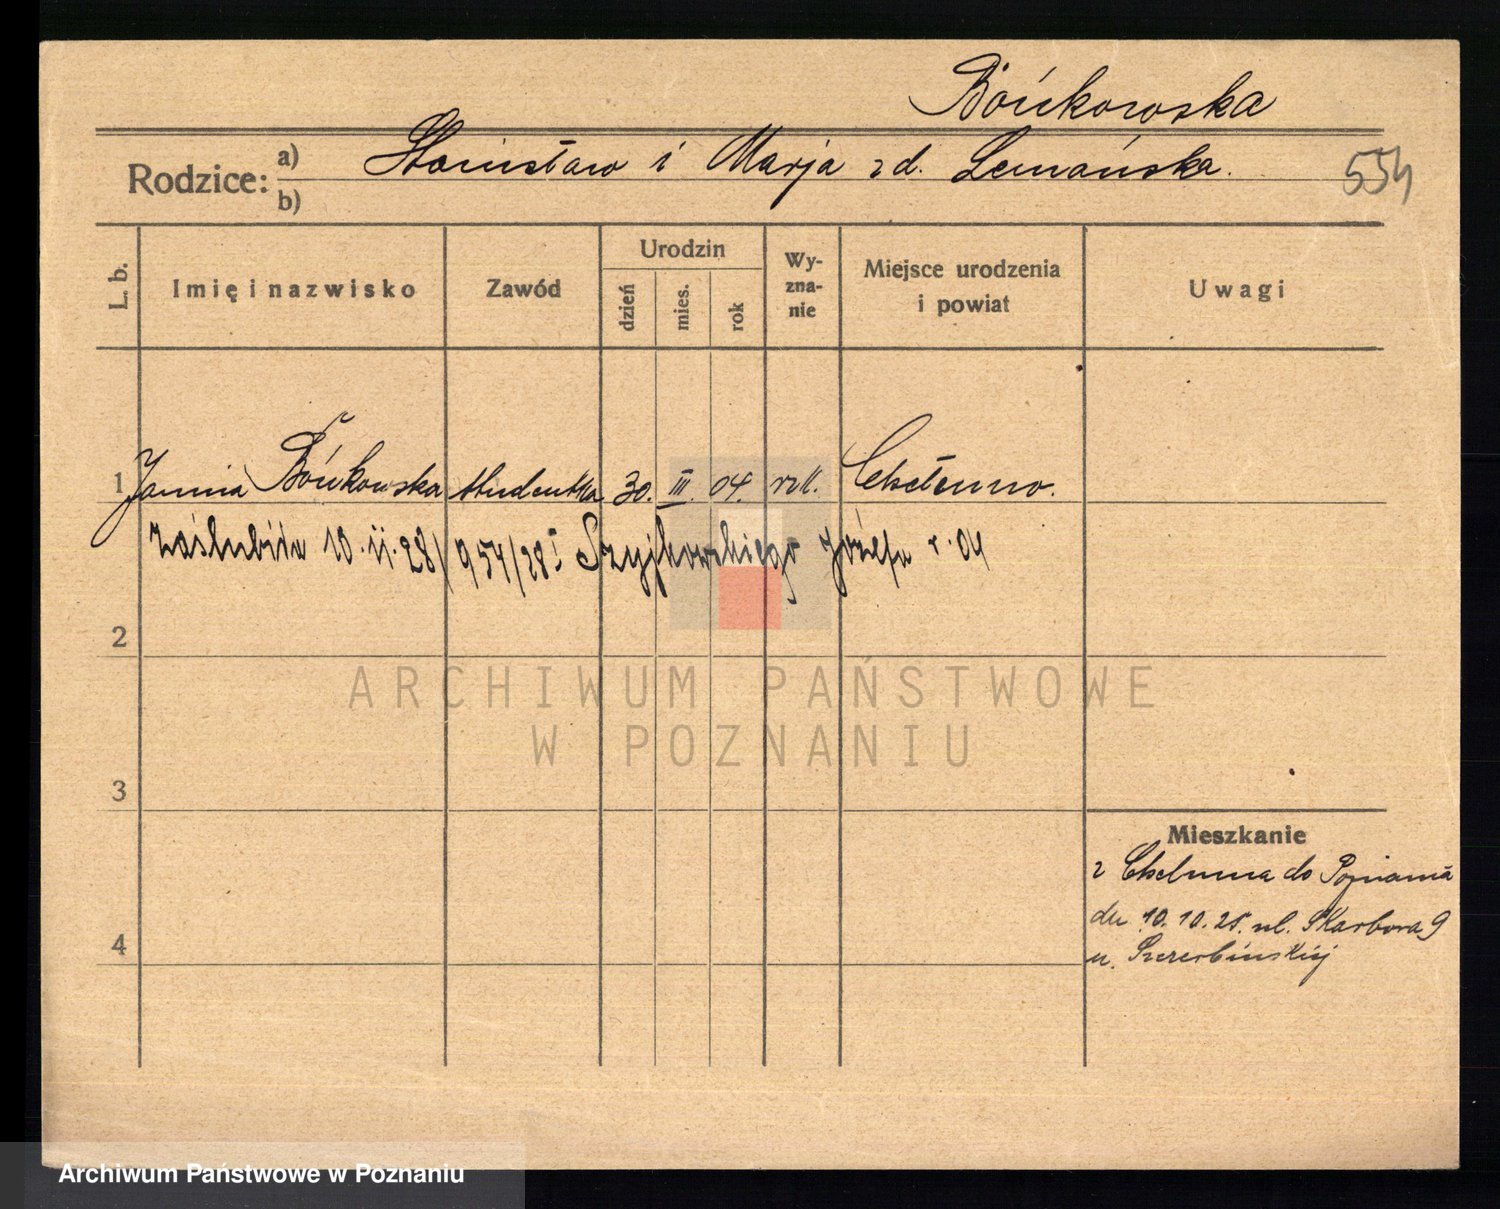 Bońkowska
Rodzice: a) Stanisław i Marja zd. Lemańska.
b)
554
L. b.
Imię i nazwisko
Zawód
Urodzin
dzień
mies.
rok
Wy-
zna-
nie
Miejsce urodzenia
i powiat
Uwagi
1 Janina Bońkowska studentka 30. III. 04. rzk. Chełmno.
zaślubiła 10.II.28/954/28 I Szyjkowskiego Józefa r. 04
2
ARCHIWUM PAŃSTWOWE
W POZNANIU
3
Mieszkanie
z Chełmna do Poznania
dn 10.10.25. ul. Skarbowa 9
u. Szczerbińskiej
4
Archiwum Państwowe w Poznaniu